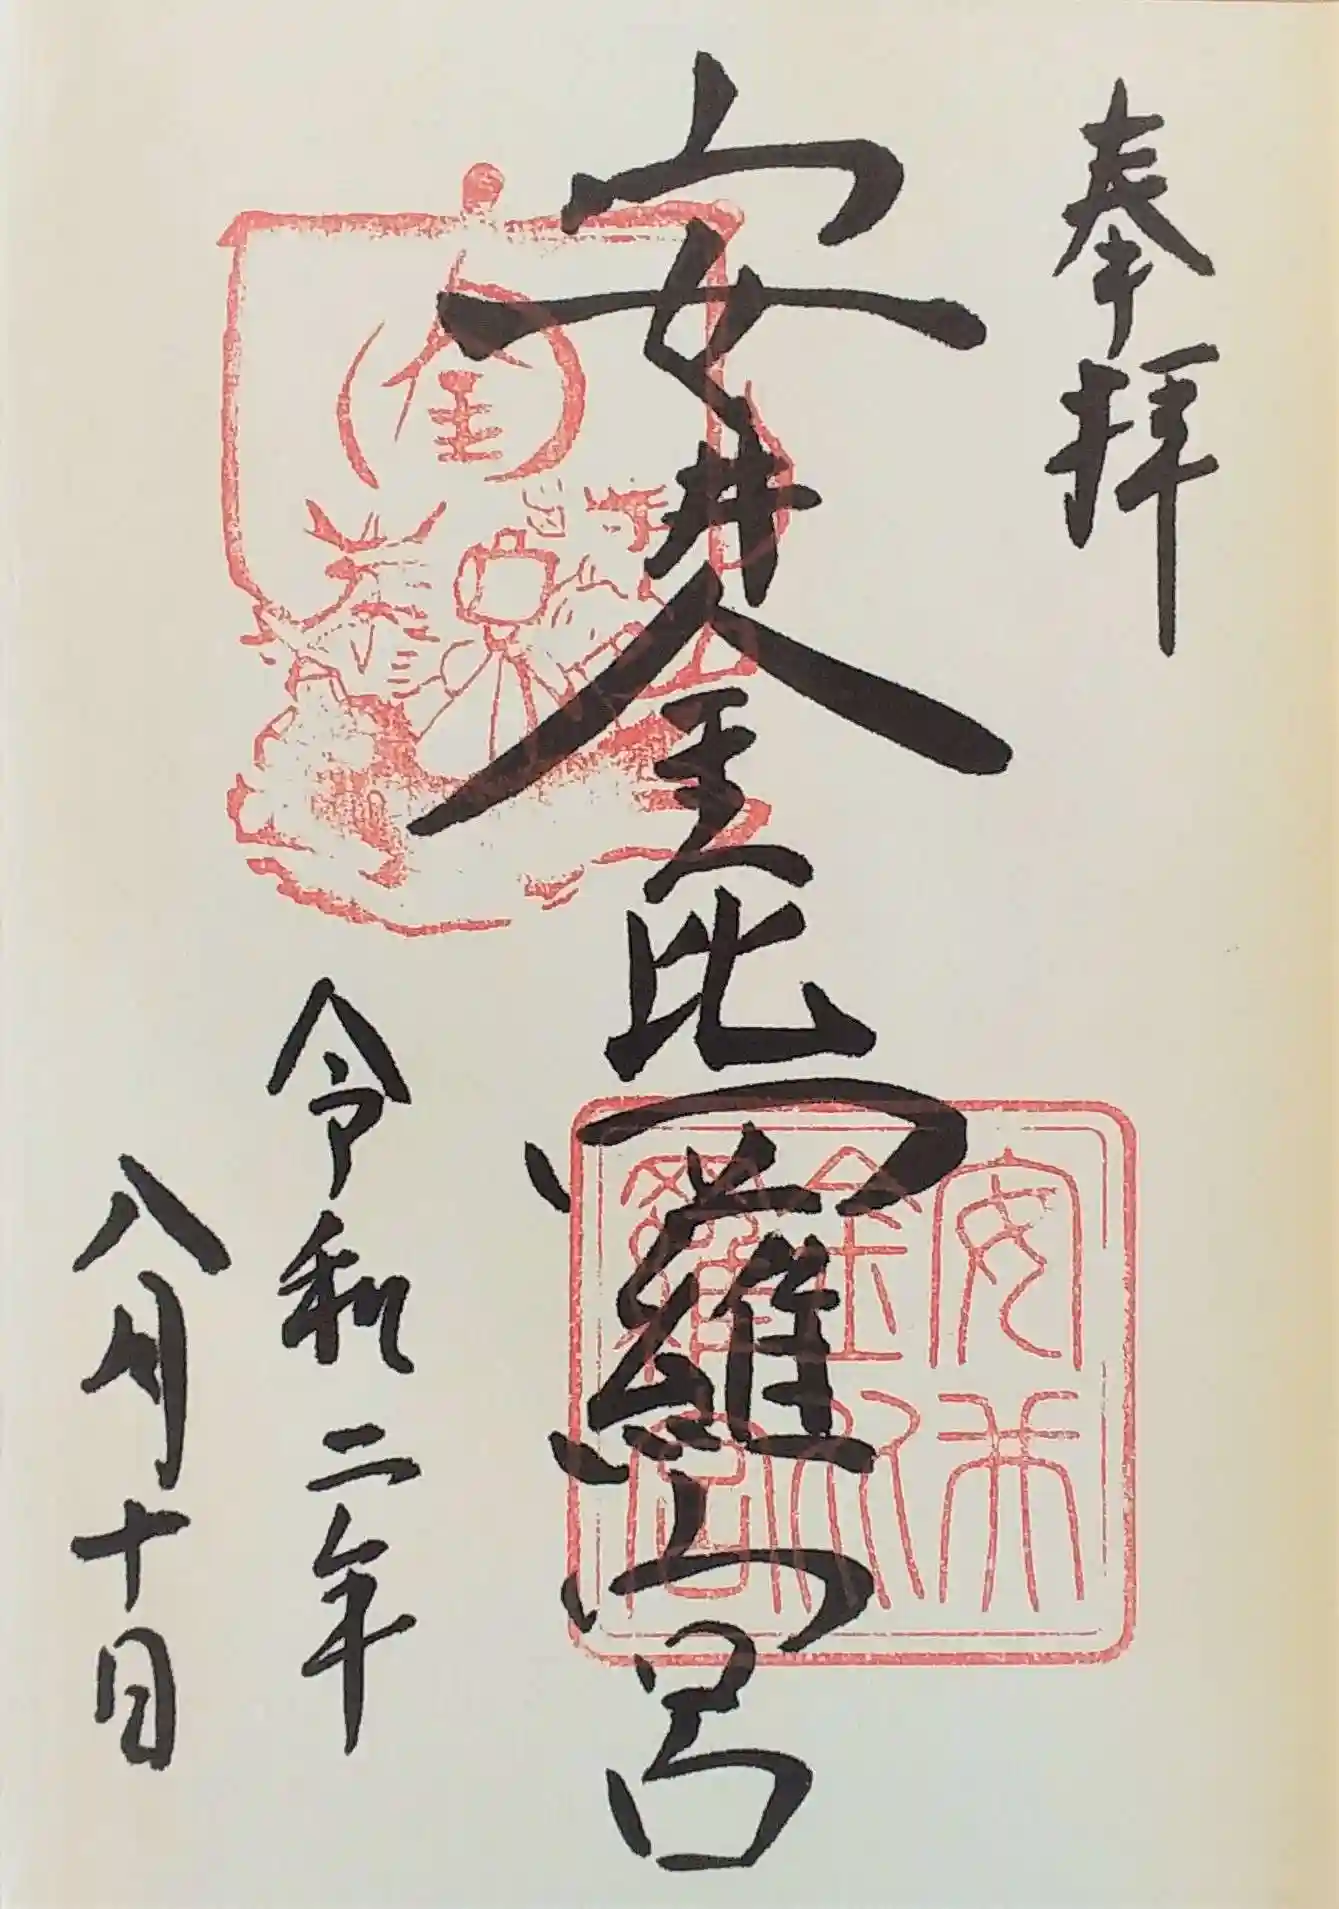 奉拝
安井金比羅宮
安井
金比
羅宮
金
令和二年
八月十日